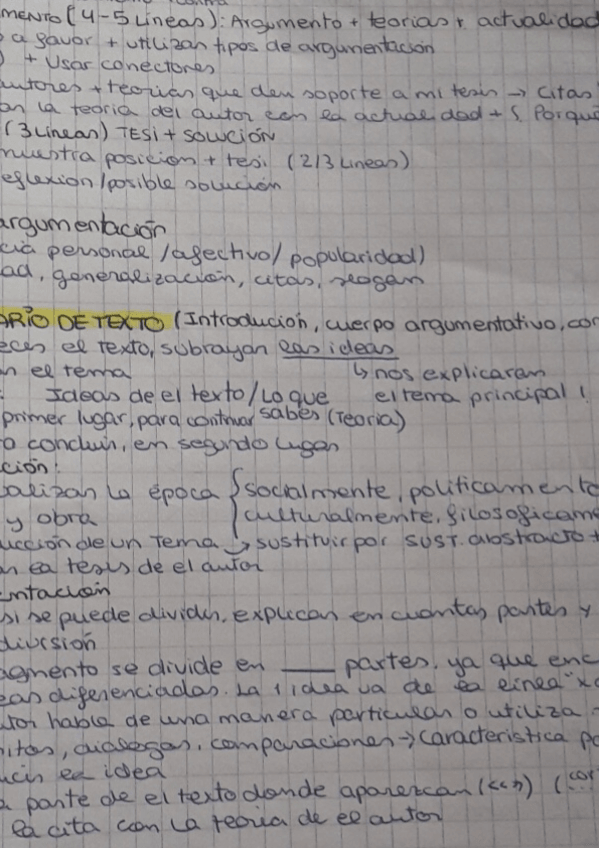 mento (4-5 Lineas): Argumento + teorias + actualidad
a favor + utilizan tipos de argumentación
+ usar conectores
autores + teorías que den soporte a mi tesis → citas
la teoria del autor con la actualidad + ¿Porqué
(3 Lineas) TESI + SOLUCIÓN
nuestra posicion + tesi. (2/3 Lineas)
eflexion/posible solución
argumentación
cia personal /afectivo/ popularidad)
ad, generalización, citas, slogan
ORIO DE TEXTO (Introducion, cuerpo argumentativo, con
eces el texto, subrayan las ideas
n el tema ↳ nos explicaran
Ideas de el texto/Lo que el tema principal!
primer lugar, para continuar sabes (Teoria)
o concluir, en segundo lugar
ción:
balizan la época { socialmente, politicamente
y obra culturalmente, filosoficame
ucción de un tema → sustituir por sust. abstracto +
n la tesis de el autor
entación
si se puede dividir, explican en cuantas partes y
división
agmento se divide en ___ partes, ya que enc
eas diferenciadas. La 1 idea va de la linea "x
tor habla de una manera particular o utiliza
itas, dialogos, comparaciones → caracteristica po
ucir la idea
a parte de el texto donde aparezcan (<< >>)
la cita con la teoria de el autor